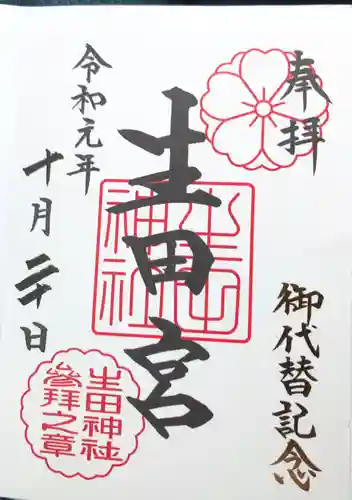 奉拝
御代替記念
生田宮
生田神社
令和元年
十月二十日
生田神社
參拜之章